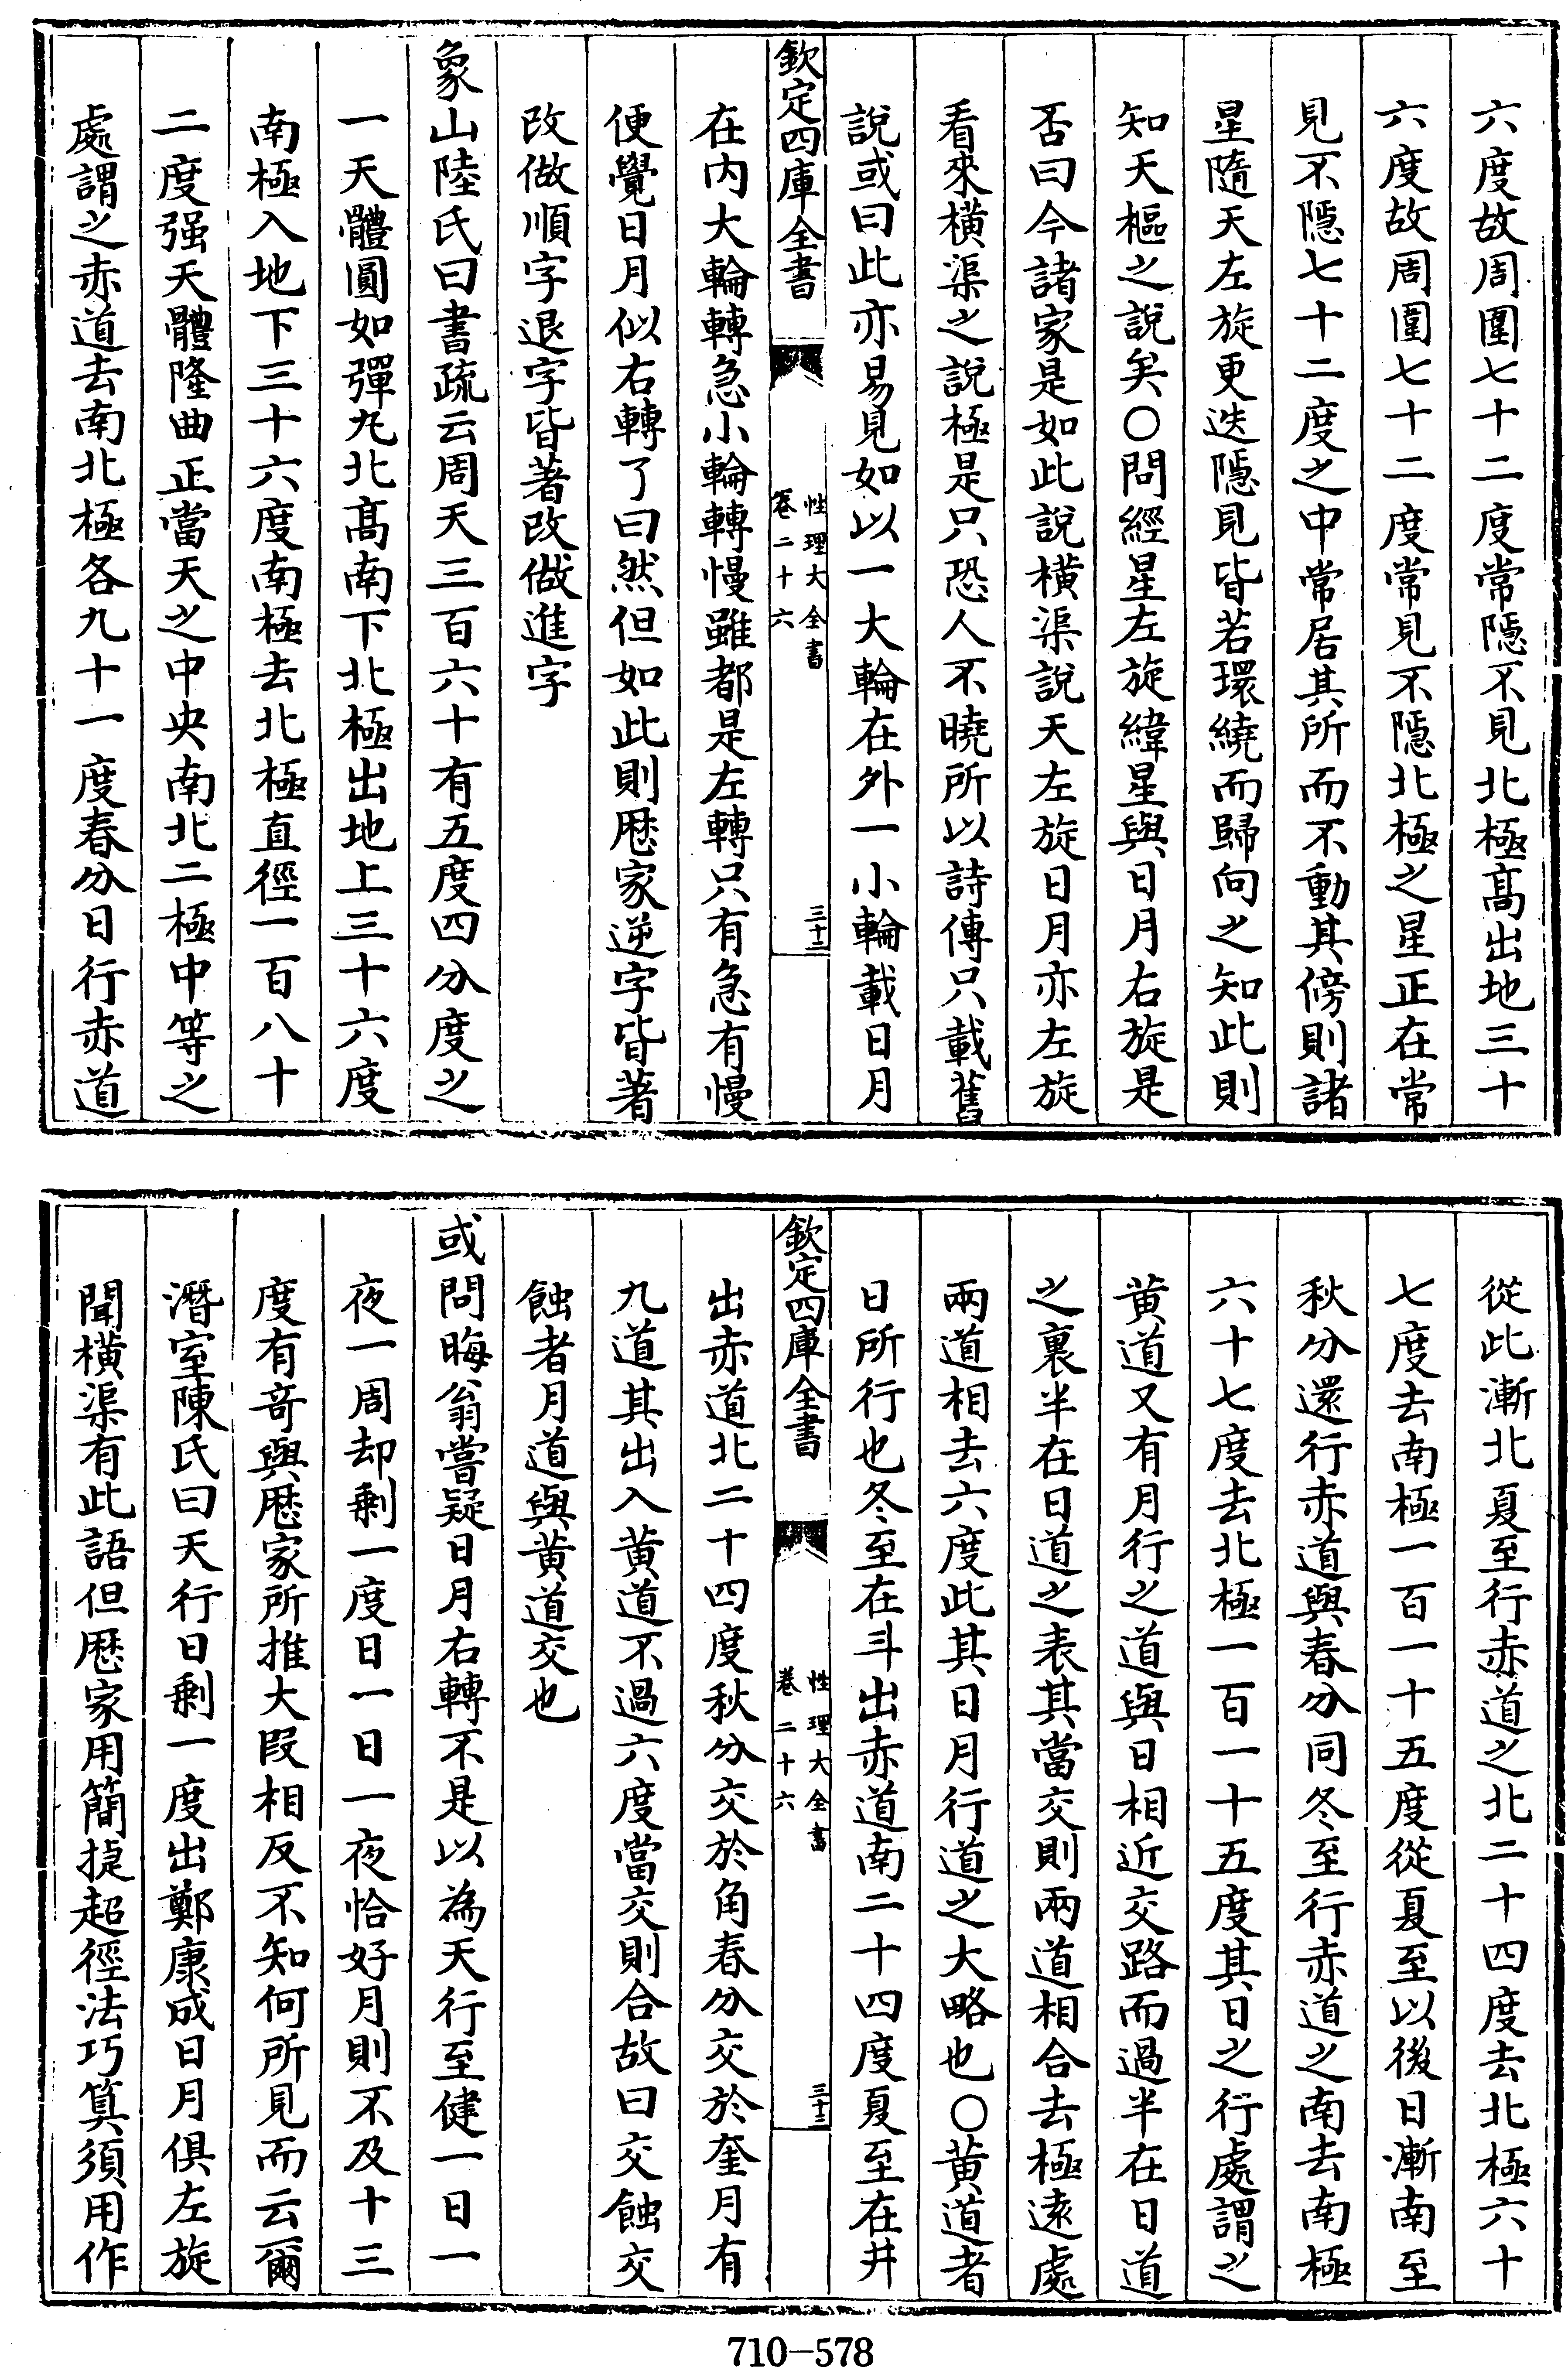 六度故周圍七十二度常隱不見北極髙出地三十
六度故周圍七十二度常見不隱北極之星正在常
見不隱七十二度之中常居其所而不動其傍則諸
星隨天左旋更迭隱見皆若環繞而歸向之知此則
知天樞之說矣○問經星左旋緯星與日月右旋是
否曰今諸家是如此說橫渠說天左旋日月亦左旋
看來橫渠之說極是只恐人不曉所以詩傳只載舊
說或曰此亦易見如以一大輪在外一小輪載日月
欽定四庫全書
性理大全書
卷二十六
三十二
在内大輪轉急小輪轉慢雖都是左轉只有急有慢
便覺日月似右轉了曰然但如此則厯家逆字皆著
改做順字退字皆著改做進字
象山陸氏曰書疏云周天三百六十有五度四分度之
一天體圓如彈丸北髙南下北極出地上三十六度
南極入地下三十六度南極去北極直徑一百八十
二度强天體隆曲正當天之中央南北二極中等之
處謂之赤道去南北極各九十一度春分日行赤道
從此漸北夏至行赤道之北二十四度去北極六十
七度去南極一百一十五度從夏至以後日漸南至
秋分還行赤道與春分同冬至行赤道之南去南極
六十七度去北極一百一十五度其日之行處謂之
黄道又有月行之道與日相近交路而過半在日道
之裏半在日道之表其當交則兩道相合去極逺處
兩道相去六度此其日月行道之大略也○黄道者
日所行也冬至在斗出赤道南二十四度夏至在井
欽定四庫全書
性理大全書
卷二十六
三十三
出赤道北二十四度秋分交於角春分交於奎月有
九道其出入黄道不過六度當交則合故曰交蝕交
蝕者月道與黄道交也
或問晦翁嘗疑日月右轉不是以為天行至健一日一
夜一周却剩一度日一日一夜恰好月則不及十三
度有竒與厯家所推大段相反不知何所見而云爾
潛室陳氏曰天行日剩一度出鄭康成日月俱左旋
聞橫渠有此語但厯家用簡㨗超徑法巧算須用作
710-578